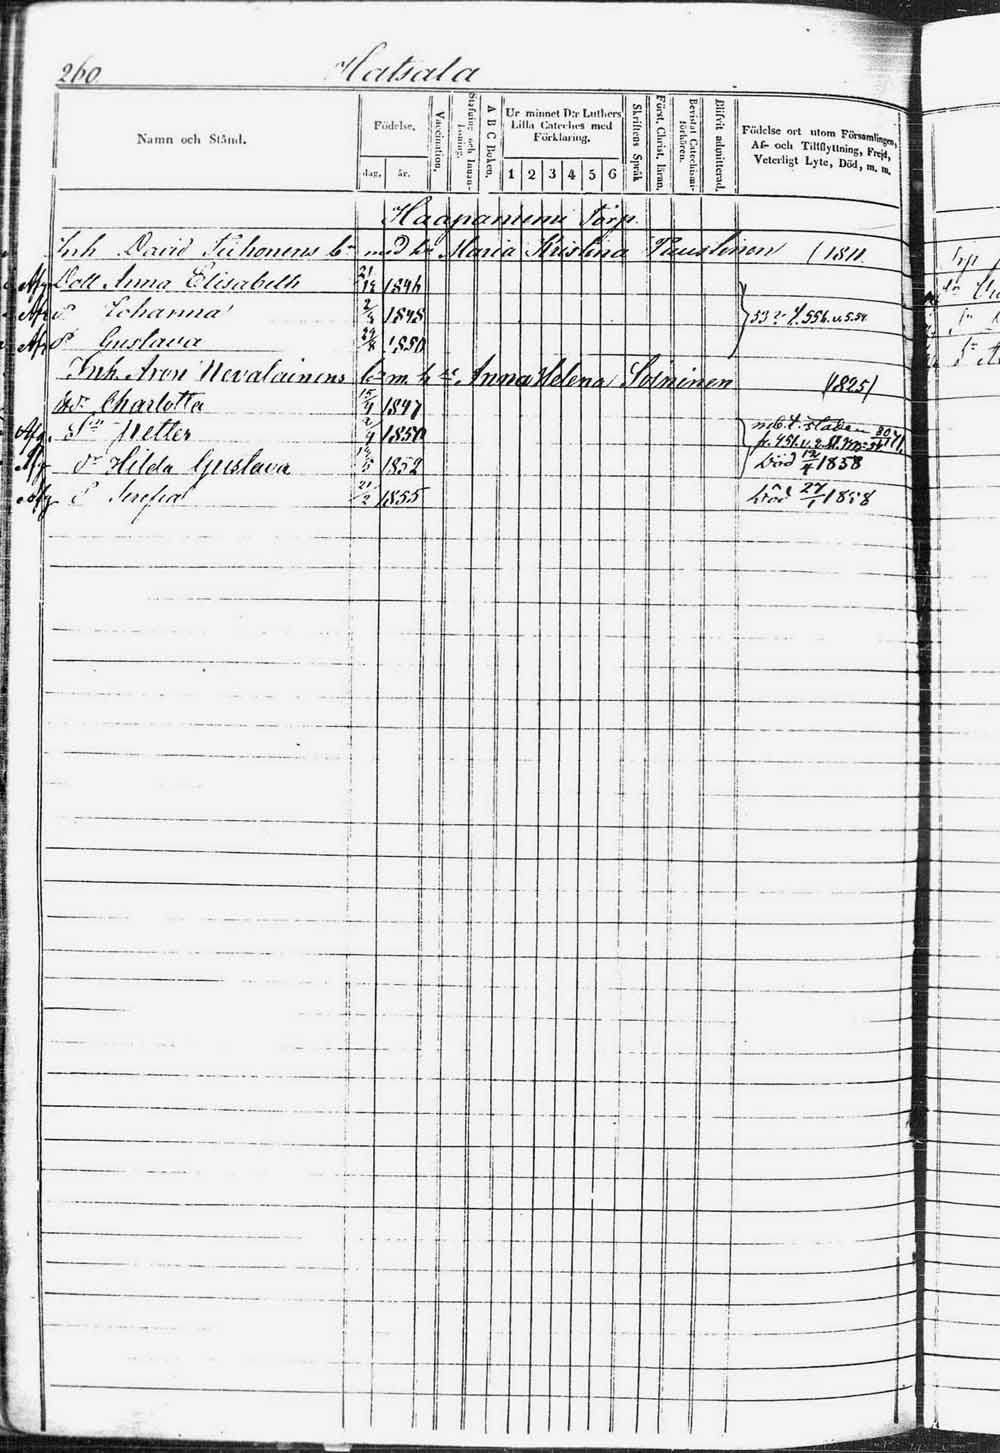 260 Hatsala
Namn och Stånd.
Födelse.
dag. år.
Vaccination.
Stafning och Innan-läsning.
A B C Boken.
Ur minnet D:r Luthers
Lilla Cateches med
Förklaring.
1 2 3 4 5 6
Skriftens Språk
Först. Christ. läran.
Bevistat Catechismi-förhören.
Blifvit admitterad.
Födelse ort utom Församlingen,
Af- och Tillflyttning, Frejd,
Veterligt Lyte, Död, m. m.
Haapaniemi Torp.
Inh David Tiihonens bn med hu Maria Kristina 1811
Afg Dott Anna Elisabeth 21/12 1846
Afg D Johanna 1848
Afg D Gustava 1850
Inh. Aron Nevalainens bn m. hu Anna Helena Soininen /1825/
Dr Charlotta 15/4 1847
Afg. Sn Petter 2/4 1850
Afg Dr Hilda Gustava 1852 Död 12/4 1858
Afg D 21/2 1855 Död 27/1 1858